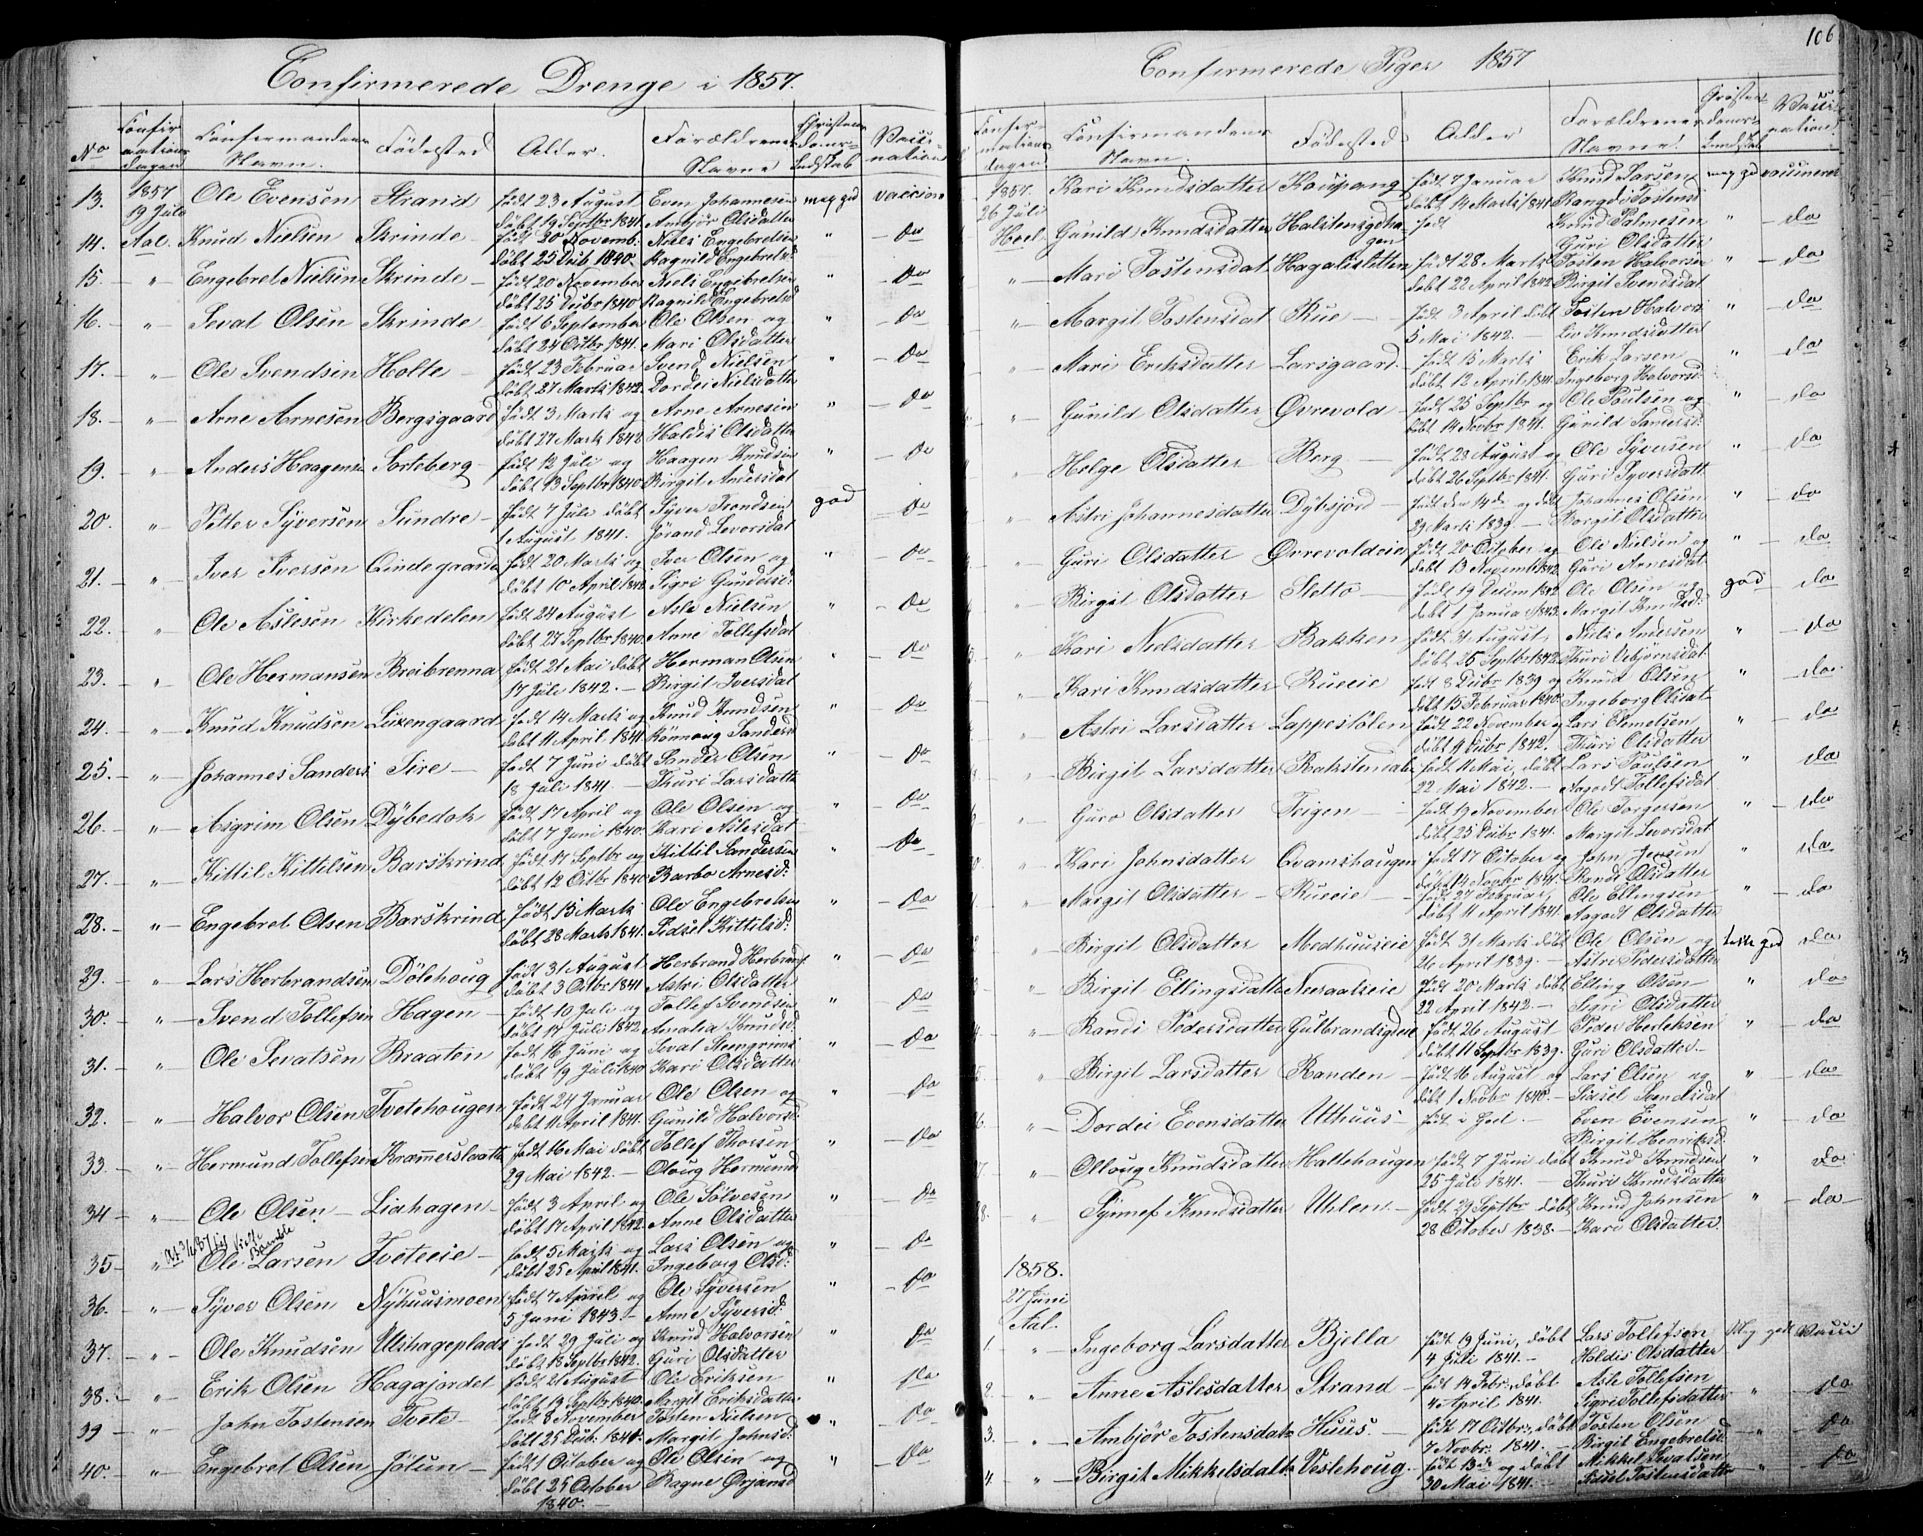 Confirmerede Drenge i 1857.
No Confirmationsdagen Confirmandens Navn. Fødested Alder. Forældrenes Navne Christendomskundskab Vaccination
13. 1857 19 Juli Ole Evensen Strand født 23 August døbt 19 Septbr 1841 Even Johannesen Ambjør Olsdatter meg god vaccion
14. Aal. Knud Nielsen Skrinde født 20 Novemb. døbt 25 Decb. 1840. Niels Engebretsen Ragnild Engebretsd. " Do
15. " Engebret Nielsen Skrinde født 20 November døbt 25 Decbr 1840 Niels Engebretsen Ragnild Engebretsd " Do
16. " Sevat Olsen Skrinde født 6 September døbt 24 Octbr 1841. Ole Olsen og Mari Olsdatter " Do
17. " Ole Svendsen Holte født 23 Februar døbt 27 Marts 1842. Svend Nielsen Dordei Nielsdatter " Do
18. " Arne Arnesen Bergsgaard født 3 Marts og døbt 27 Marts 1842 Arne Arnesen Haldis Olsdatter " Do
19. " Anders Haagens Sorteberg født 12 Juli og døbt 13 Septbr 1840. Haagen Knudsen Birgit Andersdat " Do
20. " Petter Syversen Sundre født 7 Juli døbt 1 August 1841. Syver Trondsen Jørand Levorsdat god Do
21. " Iver Iversen Lindegaard født 20 Marts og døbt 10 April 1842 Iver Olsen og Sigri Gundersd: " Do
22. " Ole Aslesen Kirkedelen født 24 August døbt 27 Septbr 1840. Asle Nielsen Anne Tollefsdat " Do
23. " Ole Hermansen Breibrenna født 21 Mai døbt 17 Juli 1842. Herman Olsen Birgit Iversdat " Do
24. " Knud Knudsen Luxengaard født 14 Marts og døbt 11 April 1841. Knud Knudsen Rønnaug Sandersd " Do
25. " Johannes Sanders Sire født 7 Juni døbt 18 Juli 1841. Sander Olsen Thuri Larsdatter " Do
26. " Asgrim Olsen Dybedok født 17 April og døbt 7 Juni 1840. Ole Olsen og Kari Nilesdat " Do
27. " Kittil Kittilsen Barskrind født 17 Septbr og døbt 12 Octbr 1840 Kittil Sandersen Barbo Arnesd: " Do
28. " Engebret Olsen Barskrind født 15 Marts døbt 28 Marts 1841. Ole Engebretsen Sidsel Kittilsd: " Do
29. " Lars Herbrandsen Dölehoug født 31 August døbt 3 Octbr 1841 Herbrand Herbrandsen Astri Olsdatter " Do
30. " Svend Tollefsen Hagen født 10 Juli og døbt 17 Juli 1842 Tollef Svendsen Amalia Knudsd. " Do
31. " Ole Sevatsen Braaten født 16 Juni og døbt 19 Juli 1840 Sevat Stengrims Kari Olsdatter " Do
32. " Halvor Olsen Tvetehougen født 24 Januar døbt 11 April 1841. Ole Olsen og Gunild Halvorsd. " Do
33. " Hermund Tollefsen Kræmmerslaatte født 16 Mai døbt 29 Mai 1842. Tollef Thorsen Olaug Hermunnd " Do
34 " Ole Olsen Liahagen født 3 April og døbt 17 April 1842. Ole Sølvesen Anne Olsdatter " Do
35 " Ole Larsen Tveteeie født 5 Marts og døbt 25 April 1841. Lars Olsen og Ingeborg Olsd: " Do
36. " Syver Olsen Nyhuusmoen født 7 April og 5 Juni 1843. Ole Syversen Anne Syversd. " Do
37. " Ole Knudsen Ulshageplads født 29 Juli og døbt 18 Septbr 1842. Knud Halvorsen Guri Olsdatter " Do
38. " Erik Olsen Hagajordet født 21 August døbt 19 Septbr 1840. Ole Eriksen Margit Eriksdatter " Do
39 " John Tostensen Tvete født 8 November døbt 25 Decb: 1841. Tosten Nielsen Margit Johnsd: " Do
40. " Engebret Olsen Jøtun født 1 October og døbt 25 October 1840. Ole Olsen og Ragne Ørjansd " Do
Confirmerede Piger 1857
106
Confirmationsdagen Confirmandens Navn. Fødested Alder Forældrenes Navne Christendomskundskab Vaccination
1857. 26 Juli Kari Knudsdatter Kaupang født 7 Januar døbt 14 Marts 1841 Knud Larsen Rangdi Tostens meg god vaccineret
Hoel Gunild Knudsdatter Halstensgdhagen født Knud Palmesen Guri Olsdatter " do
" Mari Tostensdat Hagalisletten født 28 Marts døbt 22 April 1842 Tosten Halvorsen Birgit Svendsdat " do
" Margit Tostensdat Rue født 3 April døbt 5 Mai 1842. Tosten Halvors Liv Knudsdatter " do
" Mari Eriksdatter Larsgaard født 15 Marts døbt 12 April 1841. Erik Larsen Ingeborg Halvorsd. " do
" Gunild Olsdatter Øvrevold født 25 Septbr og døbt 14 Novbr 1841. Ole Paulsen og Gunild Sandersd. " do
" Helge Olsdatter Berg født 23 August og døbt 26 Septbr 1841. Ole Syversen Guri Syversdatt " do
" Astri Johannesdatter Dybsjord født den 14de og døbt 29 Marts 1839 Johannes Olsen Margit Olsdatter " do
" Guri Olsdatter Øvrevoldeie født 20 October og døbt 13 Novemb 1842. Ole Nielsen og Guri Arnesdat " do
" Birgit Olsdatter Sletto født 19 Decem 1842 døbt 1 Janua 1843. Ole Olsen og Margit Knudsd: god do
" Kari Nielsdatter Bakken født 31 August døbt 25 Septbr 1842. Niels Andersen Thuri Vebjørnsdat " do
" Kari Knudsdatter Rueeie født 8 Decbr 1839 og døbt 15 Februar 1840. Knud Olsen Ingeborg Olsdat " do
" Astri Larsdatter Lappestølen født 22 November og døbt 9 Decbr 1842. Lars Clemetsen Thuri Olsdatter " do
" Birgit Larsdatter Bakstendal født 11 Mai, døbt 22 Mai 1842. Lars Paulsen Aagodt Tollefsdat " do
" Guro Olsdatter Trigen født 19 November døbt 25 Decbr 1841. Ole Torgersen Margit Levorsdat " do
" Kari Johnsdatter Qvamshaugen født 17 October og døbt 14 Novbr 1841. John Jensen Randi Olsdatter " do
" Margit Olsdatter Rueeie født 27 Februar, døbt 11 April 1841. Ole Ellingsen Aagodt Olsdatter " do
" Birgit Olsdatter Medhuuseie født 31 Marts døbt 26 April 1839. Ole Olsen og Astri Pedersdatter teske god do
" Birgit Ellingsdatter Neeraaleie født 20 Marts døbt 22 April 1842. Elling Olsen Sigri Olsdatter " do
" Randi Pedersdatter Gulbrandsgdeie født 26 August døbt 11 Septbr 1839. Peder Herleksen Guri Olsdatter " do
" Birgit Larsdatter Randen født 16 August og døbt 1 Novbr 1840. Lars Olsen og Sidsel Svendsdat " do
" Dordei Evensdatter Uthuus født i Gol. Even Evensen Birgit Henriksd. " do
" Ollaug Knudsdatter Haltehaugen født 7 Juni døbt 25 Juli 1841. Knud Knudsen Thuri Knudsdatter " do
" Synnef Knudsdatter Uhlen født 29 Septbr døbt 28 October 1838 Knud Johnsen Kari Olsdatter " do
1858. 27 Juni Aal.
1. " Ingeborg Larsdatter Bjella født 19 Juni, døbt 4 Juli 1841. Lars Tollefsen Holdis Olsdatter Meg godt Vacci
2. " Anne Aslesdatter Strand født 14 Febr., døbt 4 April 1841. Asle Tollefsen Sigri Tollefsdatter " do
3. " Ambjør Tostensdatt Huus. født 17 Octbr, døbt 7 Novbr. 1841. Tosten Olsen Birgit Engebretsd " do
4. " Birgit Mikkelsdatt Veslehoug. født 13de og døbt 30 Mai 1841. Mikkel Sevatsen Sidsel Tostensdatter " do